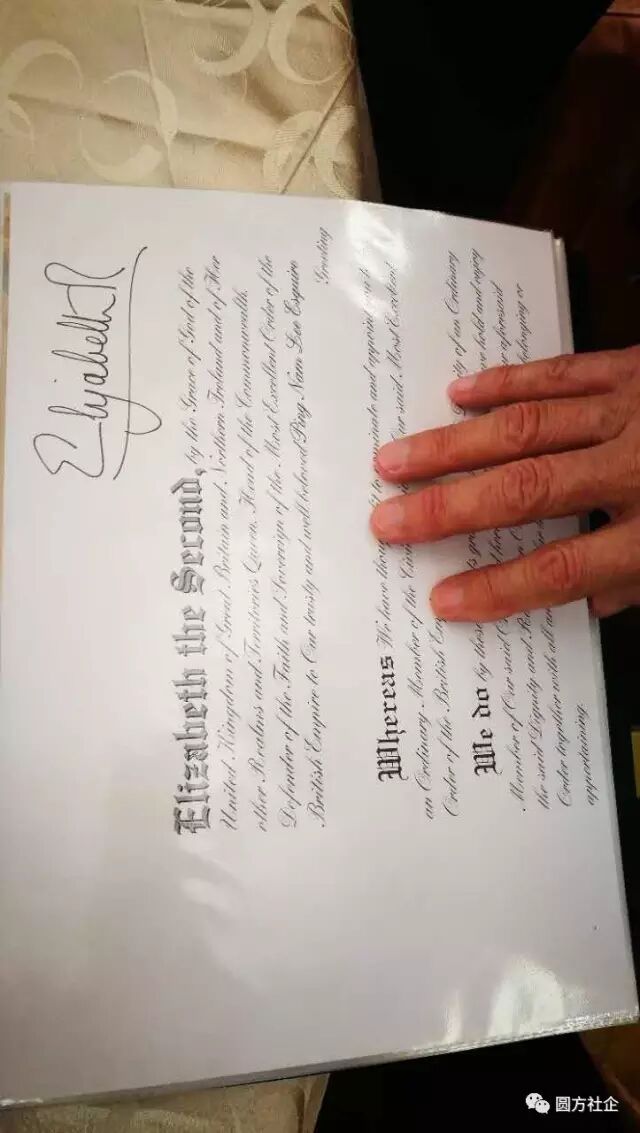 Elizabeth R
Elizabeth the Second, by the Grace of God of the
United Kingdom of Great Britain and Northern Ireland and of Her
other Realms and Territories Queen, Head of the Commonwealth,
Defender of the Faith and Sovereign of the Most Excellent Order of the
British Empire to Our trusty and well beloved Ping Nam Lee Esquire
Greeting
Whereas We have thought fit to nominate and appoint
an Ordinary Member of the Our said Most Excellent
Order of the British
We do by these of an Ordinary
Member of Our said hold and enjoy
the said Dignity and aforesaid
Order together with all and belonging or
appertaining.
圆方社企